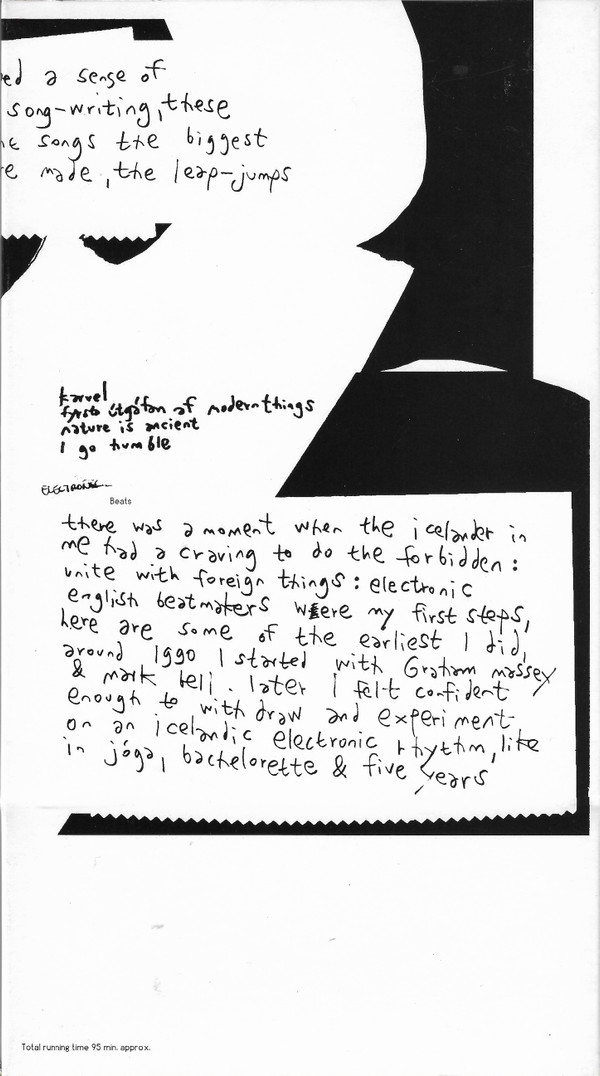 ed a sense of
song-writing, these
songs the biggest
e made, the leap-jumps
karvel
fyrsta útgáfan af modern things
nature is ancient
I go humble
ELECTRONIC
Beats
there was a moment when the icelander in
me had a craving to do the forbidden:
unite with foreign things: electronic
english beatmakers were my first steps,
here are some of the earliest I did,
around 1990 I started with Graham massey
& mark bell. later I felt confident
enough to with draw and experiment
on an icelandic electronic rhythm, like
in jóga, bachelorette & five years
Total running time 95 min. approx.